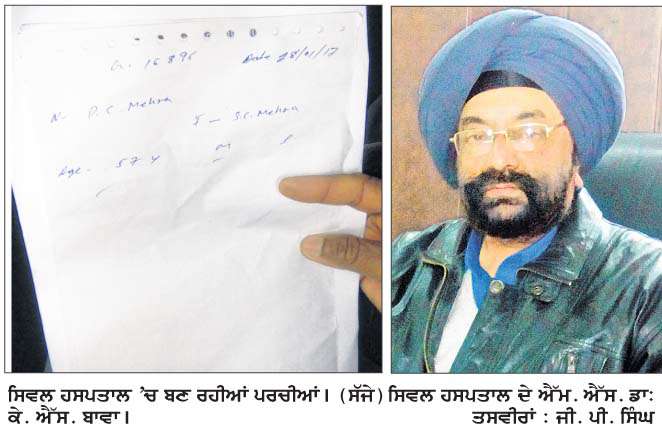 Date 28/01/17
N- P.C. Mehra
S - S.C. Mehra
Age - 57 Y
M
ਸਿਵਲ ਹਸਪਤਾਲ ’ਚ ਬਣ ਰਹੀਆਂ ਪਰਚੀਆਂ। (ਸੱਜੇ) ਸਿਵਲ ਹਸਪਤਾਲ ਦੇ ਐੱਮ. ਐੱਸ. ਡਾ:
ਕੇ. ਐੱਸ. ਬਾਵਾ। ਤਸਵੀਰਾਂ : ਜੀ. ਪੀ. ਸਿੰਘ